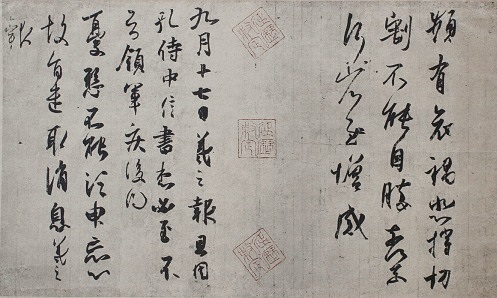 頻有哀禍悲摧切
割不能自勝奈何奈
何省慰增感
延暦勅定
延暦勅定
延暦勅定
九月十七日羲之報且因
孔侍中信書想必至不
知領軍疾後問
憂懸不能須臾忘心
故旨遣取消息羲之
報